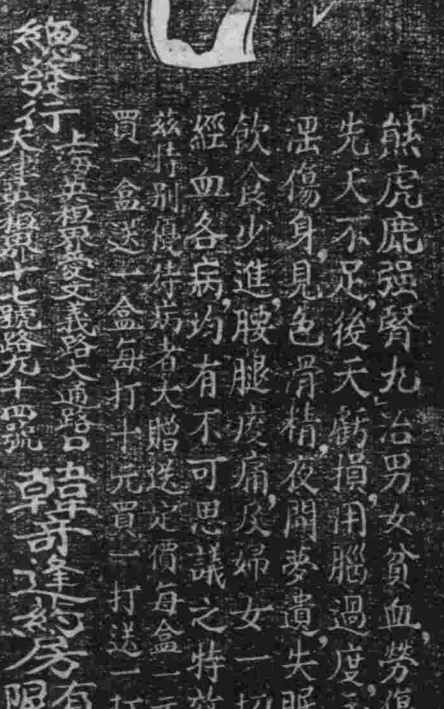 「熊虎鹿强腎丸」治男女貧血,勞傷
先天不足,後天虧損,用腦過度,
淫傷身,見色滑精,夜間夢遺,失眠
飲食少進,腰腿痠痛,及婦女一切
經血各病,均有不可思議之特效
茲特別優待病者大贈送定價每盒一元
買一盒送一盒每打十元買一打送一打
上海英租界愛文義路大通路口
總發行天津英租界十七號路九十四號
韓奇逢葯房有限